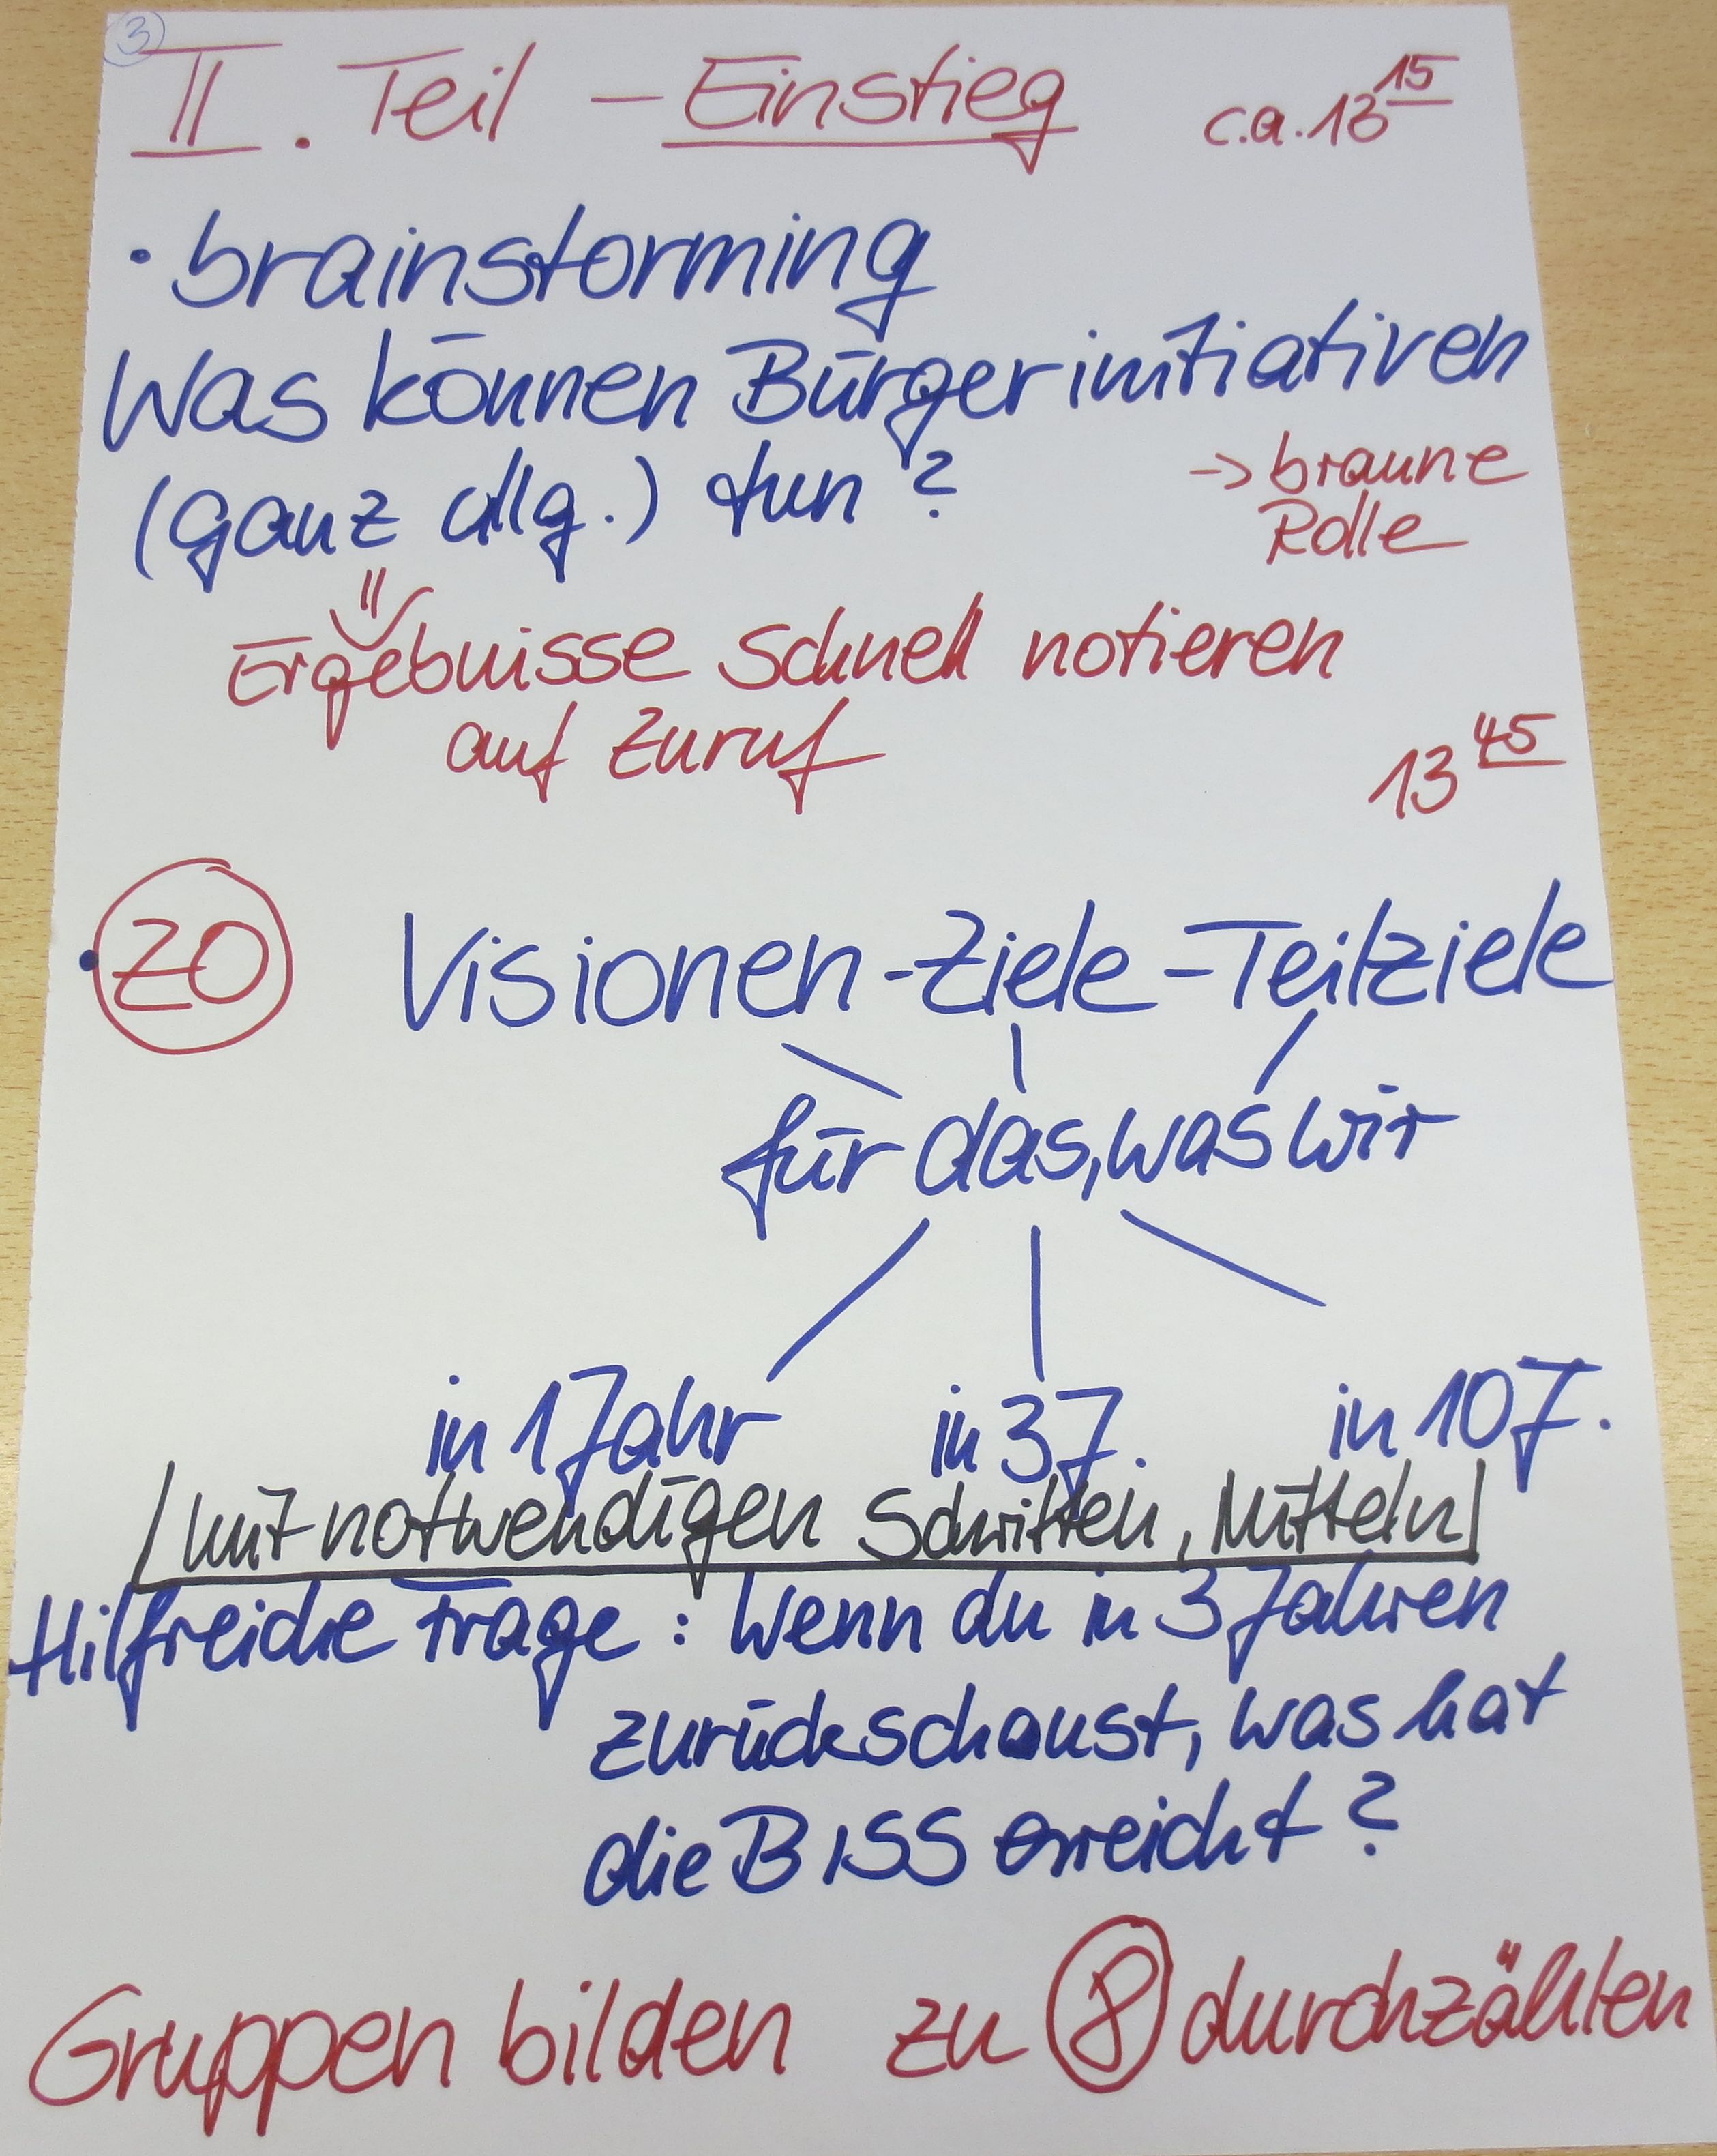 ③
II. Teil – Einstieg c.a. 13 15
• brainstorming
Was können Bürgerinitiativen
(ganz allg.) tun?
→ braune
Rolle
Ergebnisse schnell notieren
auf Zuruf
13 45
• ZO Visionen - Ziele - Teilziele
für das, was wir
in 1 Jahr in 3 J. in 10 J.
[mit notwendigen Schritten, Mitteln]
Hilfreiche Frage: Wenn du in 3 Jahren
zurückschaust, was hat
die BISS erreicht?
Gruppen bilden zu ⑧ durchzählen